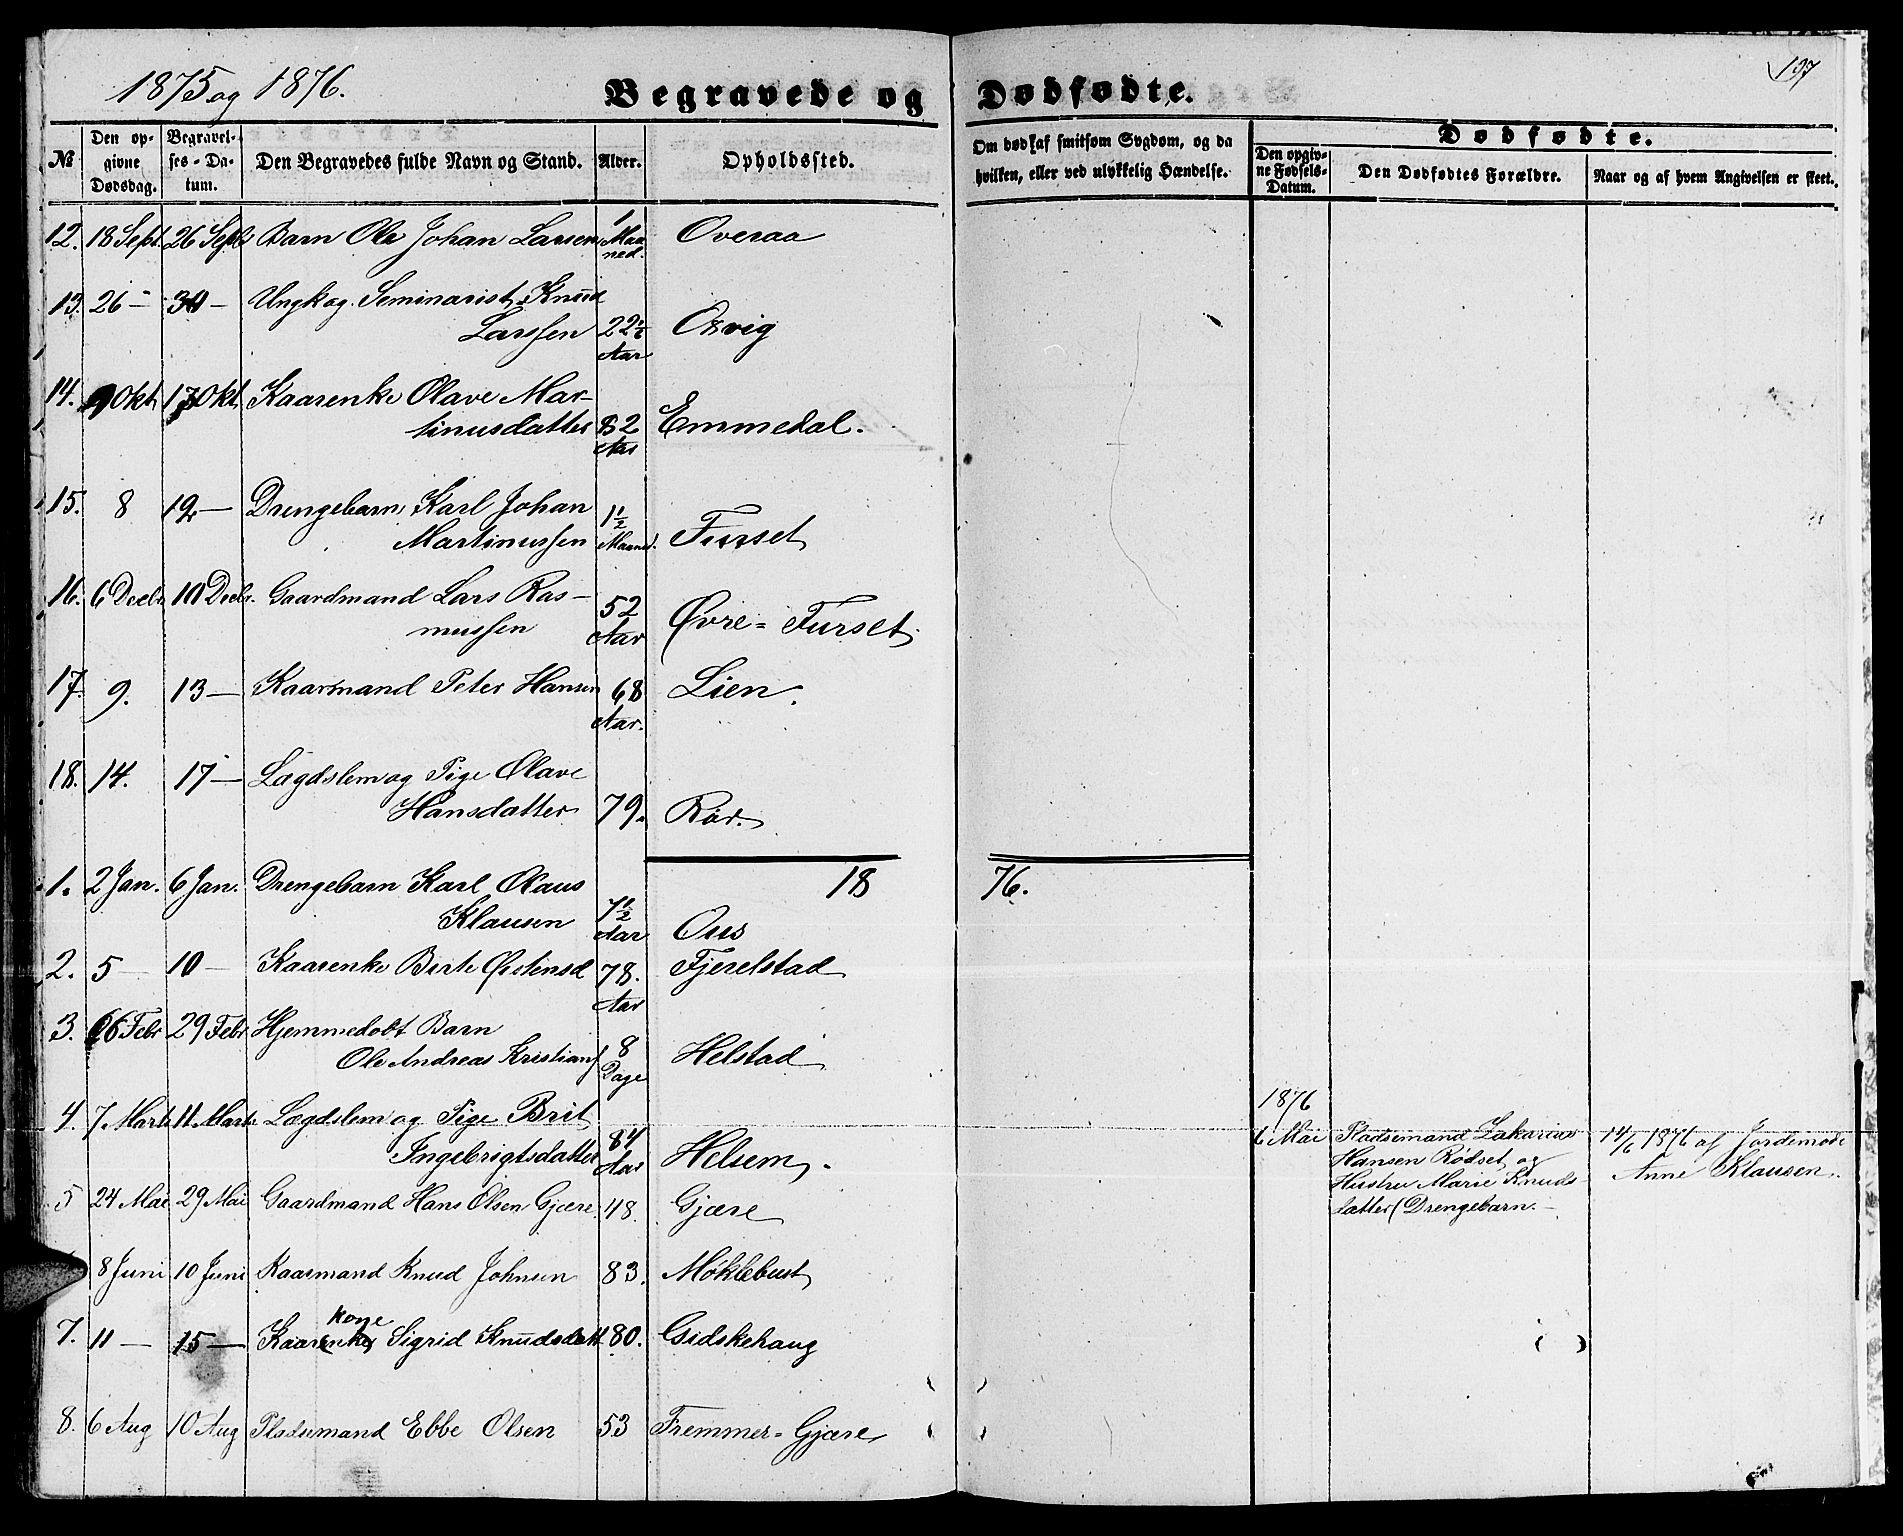 1875 og 1876.
Begravede og Dødfødte.
197
No
Den opgivne Dødsdag.
Begravelses-Datum.
Den Begravedes fulde Navn og Stand.
Alder.
Opholdssted.
Om død af smitsom Sygdom, og da hvilken, eller ved ulykkelig Hændelse.
Dødfødte.
Den opgivne Fødsels-Datum.
Den Dødfødtes Forældre.
Naar og af hvem Angivelsen er skeet.
12. 18 Sept. 26 Sept Barn Ole Johan Larsen 1 Maaned. Overaa
13. 26 — 30 — Ungk og Seminarist Knud
Larssen 22½ Aar Osvig
14. 9 Okt 17 Okt Kaarenke Olave Mar-
tinusdatter 82 Aar Emmedal.
15. 8 12 — Drengebarn Karl Johan
Martinussen 1½ Maaned. Furset
16. 6 Decbr 10 Decbr. Gaardmand Lars Ras-
mussen 52 Aar Øvre-Furset
17. 9. 13 — Kaarmand Peter Hansen 68 Aar. Lien.
18. 14. 17 — Lægdslem og Pige Olave
Hansdatter 79. Rør.
18 76.
1. 2 Jan. 6 Jan. Drengebarn Karl Olaus
Klausen 7½ Aar Ous
2. 5 — 10 — Kaarenke Birte Østensd 78. Aar Fjerelstad
3. 26 Febr 29 Febr Hjemmedøbt Barn
Ole Andreas Kristians 8 Dage Helstad
4. 7 Marts 11 Marts Lægdslem og Pige Brit
Ingebrigtsdatter 84 Aar Helsem.
5 24 Mai 29 Mai Gaardmand Hans Olsen Gjære 48. Gjære
8 Juni 10 Juni Kaarmand Knud Johnsen 83. Møklebust
7. 11 — 15 — Kaarenke kone Sigrid Knudsdatt 80. Gidskehaug
8. 6 Aug 10 Aug Pladsemand Ebbe Olsen 53 Fremmer-Gjære
1876
6 Mai Pladsemand Zakarias
Hansen Rødset og
Hustru Marie Knuds-
datter (Drengebarn. —
14/6 1876 af Jordemode
Anne Klausen.